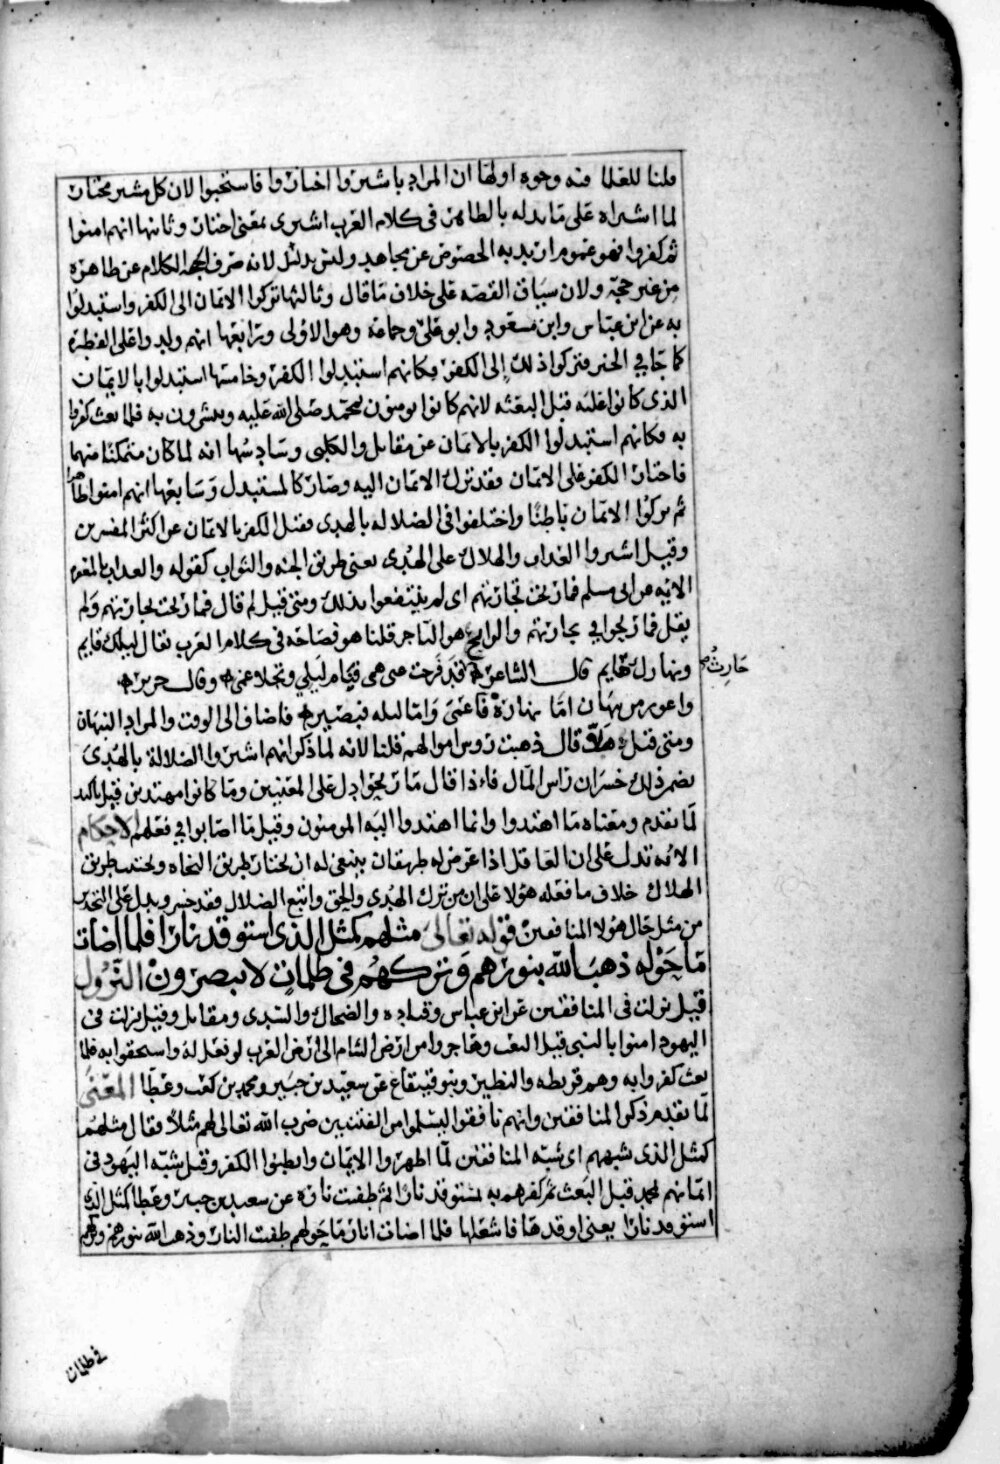 قلنا للعلما فيه وجوه اولها ان المراد باشتروا اختاروا فاستحبوا لان كل مشتر مختار
لما اشتراه على ما بدله بالظاهر في كلام العرب اشترى بمعنى اختار وثانيها انهم امنوا
ثم كفروا فهو عموم اريد به الخصوص عن مجاهد وليس بدليل لانه صرف لجهة الكلام عن ظاهره
من غير حجة ولان سياق القصه على خلاف ما قال وثالثها تركوا الايمان الى الكفر واستبدلوا
به عن ابن عباس وابن مسعود وابو علي وجماعة وهو الاولى ورابعها انهم ولدوا على الفطرة
كما جا في الخبر فتركوا ذلك إلى الكفر فكانهم استبدلوا الكفر وخامسها استبدلوا بالايمان
الذي كانوا عليه قبل البعثه لانهم كانوا يومنون بمحمد صلى الله عليه ويبشرون به فلما بعث كفروا
به فكانهم استبدلوا الكفر بالايمان عن مقاتل والكلبي وسادسها انه لما كان متمكنا منهما
فاختار الكفر على الايمان فقد ترك الايمان اليه وصار كالمستبدل وسابعها انهم امنوا ظاهرا
ثم تركوا الايمان باطنا واختلفوا في الضلاله بالهدى فقيل الكفر بالايمان عن اكثر المفسرين
وقيل اشتروا العذاب والهلاك على الهدى يعني طريق الجنه والثواب كقوله والعذاب بالمغفره
الايه عن ابي مسلم فما ربحت تجارتهم اي لم ينتفعوا بذلك ومتى قيل لم قال فما ربحت تجارتهم ولم
يقل فما ربحوا في تجارتهم والرابح هو التاجر قلنا هو فصاحه في كلام العرب يقال ليلك قايم
ونهارك صايم قال الشاعر حارث قد فرجت عني همي فنام ليلي وتجلا غمي وقال جرير
واعور من نبهان اما نهاره فاعمى واما ليله فبصير فاضاف الى الوقت والمراد النبهان
ومتى قيل هلا قال ذهبت روس اموالهم قلنا لانه لما ذكر انهم اشتروا الضلالة بالهدى
تضمن ذلك خسران راس المال فاذا قال ما ربحوا دل على المعنيين وما كانوا مهتدين قيل تاكيد
لما تقدم ومعناه ما اهتدوا وانما اهتدوا اليه المومنون وقيل ما اصابوا في فعلهم الاحكام
الايه تدل على ان العاقل اذا عرض له طريقان ينبغي له ان يختار طريق النجاه ويجتنب طريق
الهلاك خلاف ما فعله هؤلا على ان من ترك الهدى والحق واتبع الضلال فقد خسر ويدل على التحذير
من مثل حال هؤلا المنافقين قوله تعالى مثلهم كمثل الذي استوقد نارا فلما اضات
ما حوله ذهب الله بنورهم وتركهم في ظلمات لا يبصرون النزول
قيل نزلت في المنافقين عن ابن عباس وقتاده والضحاك والسدي ومقاتل وقيل نزلت في
اليهود امنوا بالنبي قبل البعث وهاجروا من ارض الشام الى ارض العرب واستحقوا به فلما
بعث كفروا به وهم قريظه والنضير وبنو قينقاع عن سعيد بن جبير ومحمد بن كعب وعطا المعنى
لما تقدم ذكر المنافقين وانهم نافقوا ليسلموا من الفتنتين ضرب الله تعالى لهم مثلا فقال مثلهم
كمثل الذي شبههم اي شبه المنافقين لما اظهروا الايمان وابطنوا الكفر وقيل شبه اليهود في
ايمانهم بمحمد قبل البعث ثم كفرهم به بمستوقد نار ثم طفيت ناره عن سعيد بن جبير وعطا كمثل الذي
استوقد نارا يعني اوقدها فاشعلها فلما اضات انار ما حولهم طفيت النار وذهب الله بنورهم وتركهم
في ظلمات